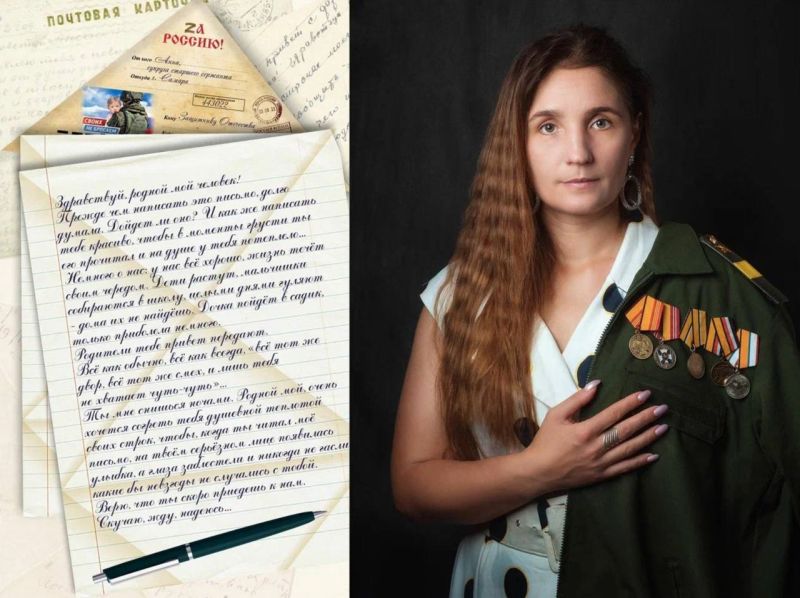 ПОЧТОВАЯ КАРТОЧКА
ZА
РОССИЮ!
От кого Анна,
супруга старшего сержанта
Откуда г. Самара
443022
СВОИХ
НЕ БРОСАЕМ
Кому Защитнику Отечества
Здравствуй, родной мой человек!
Прежде чем написать это письмо, долго
думала. Дойдет ли оно? И как же написать
тебе красиво, чтобы в моменты грусти ты
его прочитал и на душе у тебя потеплело...
Немного о нас: у нас всё хорошо, жизнь течёт
своим чередом. Дети растут, мальчишки
собираются в школу, целыми днями гуляют
- дома их не найдёшь. Дочка пойдёт в садик,
только приболела немного.
Родители тебе привет передают.
Всё как обычно, всё как всегда, «всё тот же
двор, всё тот же смех, и лишь тебя
не хватает чуть-чуть»...
Ты мне снишься ночами. Родной мой, очень
хочется согреть тебя душевной теплотой
своих строк, чтобы, когда ты читал моё
письмо, на твоём серьёзном лице появилась
улыбка, а глаза заблестели и никогда не гасли
какие бы невзгоды не случались с тобой.
Верю, что ты скоро приедешь к нам.
Скучаю, жду, надеюсь...